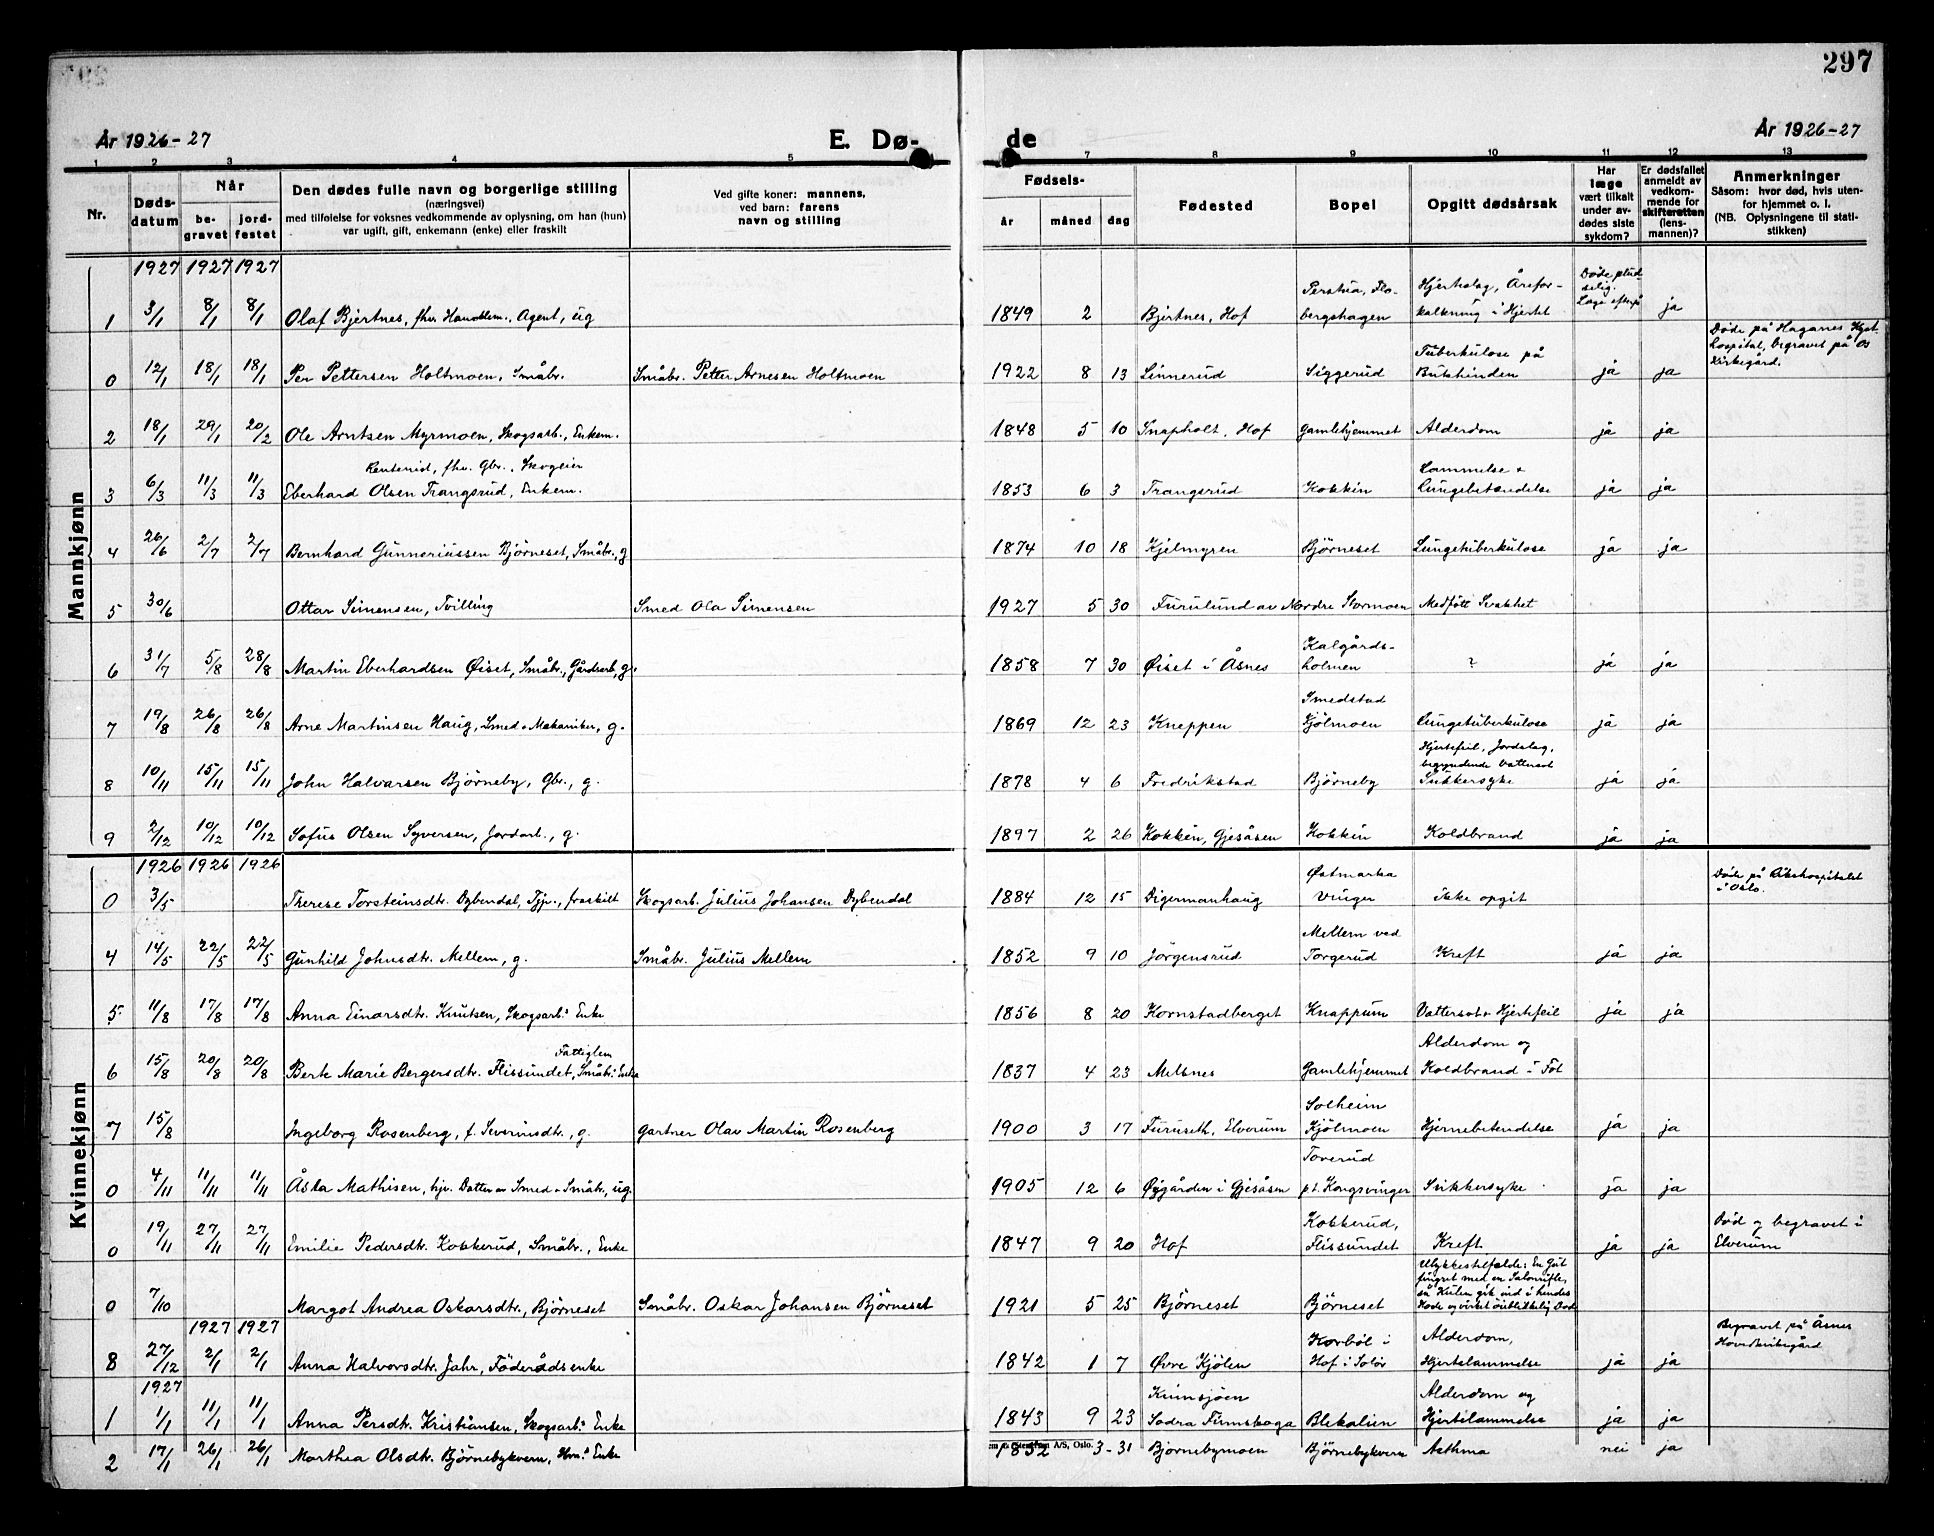 297
År 1926-27
E. Dø-
de
År 1926-27
1 2 3 4 5 7 8 9 10 11 12 13
Nr.
Døds-
datum
Når
be-
gravet
jord-
festet
Den dødes fulle navn og borgerlige stilling
(næringsvei)
med tilføielse for voksnes vedkommende av oplysning, om han (hun)
var ugift, gift, enkemann (enke) eller fraskilt
Ved gifte koner: mannens,
ved barn: farens
navn og stilling
Fødsels-
år måned dag
Fødested
Bopel
Opgitt dødsårsak
Har
læge
vært tilkalt
under av-
dødes siste
sykdom?
Er dødsfallet
anmeldt av
vedkom-
mende for
skifteretten
(lens-
mannen)?
Anmerkninger
Såsom: hvor død, hvis uten-
for hjemmet o. l.
(NB. Oplysningene til stati-
stikken)
Mannkjønn
1927 1927 1927
1 3/1 8/1 8/1 Olaf Bjertnes, fhv. Handelsm., Agent, ug 1849 2 Bjertnes, Hof Perstua, Flo-
bergshagen Hjerteslag, Årefor-
kalkning i Hjertet Døde plud-
selig.
Læge efterpå ja
0 12/1 18/1 18/1 Per Pettersen Holtmoen, Småbr. Småbr. Petter Arnesen Holtmoen 1922 8 13 Linnerud Siggerud Tuberkulose på
Bukhinden ja ja Døde på Haganes Kyst-
hospital, begravet på Os
Kirkegård.
2 18/1 29/1 20/2 Ole Arntsen Myrmoen, Skogsarb., Enkem. 1848 5 10 Snapholt, Hof Gamlehjemmet Alderdom ja ja
3 6/3 11/3 11/3 Rentenist, fhv. Gbr., Skogeier
Eberhard Olsen Trangsrud, Enkem. 1853 6 3 Trangsrud Kokkin Lammelse +
Lungebetendelse ja ja
4 26/6 2/7 2/7 Bernhard Gunneriussen Björneset, Småbr., g 1874 10 18 Kjelmyren Björneset Lungetuberkulose ja ja
5 30/6 Ottar Simensen, Tvilling Smed Ola Simensen 1927 5 30 Furulund av Nordre Stormoen Medfött Svakhet
6 31/7 5/8 28/8 Martin Eberhardsen Øiset, Småbr., Gårdsarb., g. 1858 7 30 Øiset i Åsnes Kalgårds-
holmen ? ja ja
7 19/8 26/8 26/8 Arne Martinsen Haug, Smed + Mekaniker, g. 1869 12 23 Kneppen Smedstad
Kjölmoen Lungetuberkulose ja ja
8 10/11 15/11 15/11 John Halvarsen Björneby, Gbr., g. 1878 4 6 Fredrikstad Björneby Hjertefeil, Jordslag,
begyndende Vattersot
Sukkersyke ja ja
9 2/12 10/12 10/12 Sofus Olsen Syversen, Jordarb., g. 1897 2 26 Kokkin, Gjesåsen Kokkin Koldbrand ja ja
Kvinnekjønn
1926 1926 1926
0 3/5 Therese Torsteinsdtr. Dybendal, Tjp., fraskilt Skogsarb. Julius Johansen Dybendal 1884 12 15 Digermanhaug Østmarka
Vinger ikke opgit Døde på Rikshospitalet
i Oslo.
4 14/5 22/5 22/5 Gunhild Johnsdtr. Mellem, g. Småbr. Julius Mellem 1852 9 10 Jörgensrud Mellem ved
Torgerud Kreft ja ja
5 11/8 17/8 17/8 Anna Einarsdtr. Knutsen, Skogsarb.s Enke 1856 8 20 Kornstadberget Knappum Vattersot + Hjertefeil ja ja
6 15/8 20/8 20/8 Fattiglem
Berte Marie Bergersdtr. Flissundet, Småbr.s Enke 1837 4 23 Melsnes Gamlehjemmet Alderdom og
Koldbrand i Föt
7 15/8 Ingeborg Rosenberg, f. Severinsdtr., g. Gartner Olav Martin Rosenberg 1900 3 17 Furuseth, Elverum Solheim
Kjölmoen Hjernebetendelse ja ja
0 4/11 11/11 11/11 Åsta Mathisen, hjv. Datter av Smed + Småbr., ug. 1905 12 6 Øigården i Gjesåsen Toverud
p.t. Kongsvinger Sukkersyke ja ja
0 19/11 27/11 27/11 Emilie Pedersdtr. Kokkerud, Småbr., Enke 1847 9 20 Hof Kokkerud,
Flissundet Kreft ja ja Död og begravet i
Elverum
0 7/10 Margot Andrea Oskarsdtr., Björneset Småbr. Oskar Johansen Björneset 1921 5 25 Björneset Björneset Ulykkestilfælde: En Gut
fingret med en Salonrifle,
så Kulen gik ind i hendes
Hode og virket öieblikkelig Död
1927 1927
8 27/12 2/1 2/1 Anna Halvorsdtr. Jahr, Föderådsenke 1842 1 7 Øvre Kjölen Korböl i
Hof i Solör Alderdom,
Hjertelammelse ja ja Begravet på Åsnes
Hovedkirkegård
1927
1 1/1 11/1 11/1 Anna Persdtr. Kristiansen, Skogsarb.s Enke 1843 9 23 Kumsjöen
Södra Finnskoga Blekalien Alderdom og
Hjertelammelse ja ja
2 17/1 26/1 26/1 Marthea Olsdtr. Björnebykvern, Hm.s Enke 1852 3-31 Björnebymoen Björnebykvern Asthma nei ja
A/S, Oslo.